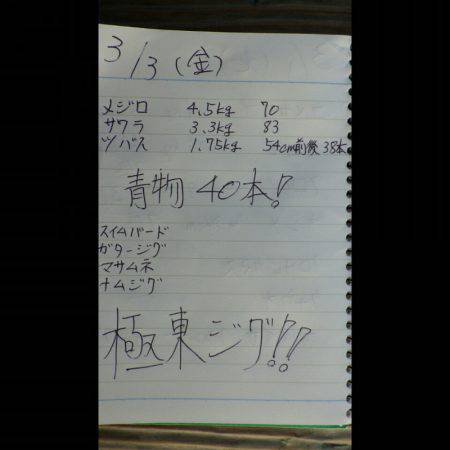 3/3(金)
メジロ 4.5kg 70
サワラ 3.3kg 83
ツバス 1.75kg 54cm前後 38本
青物 40本!
スイムバード
ガタージグ
マサムネ
ナムジグ
極東ジグ!!